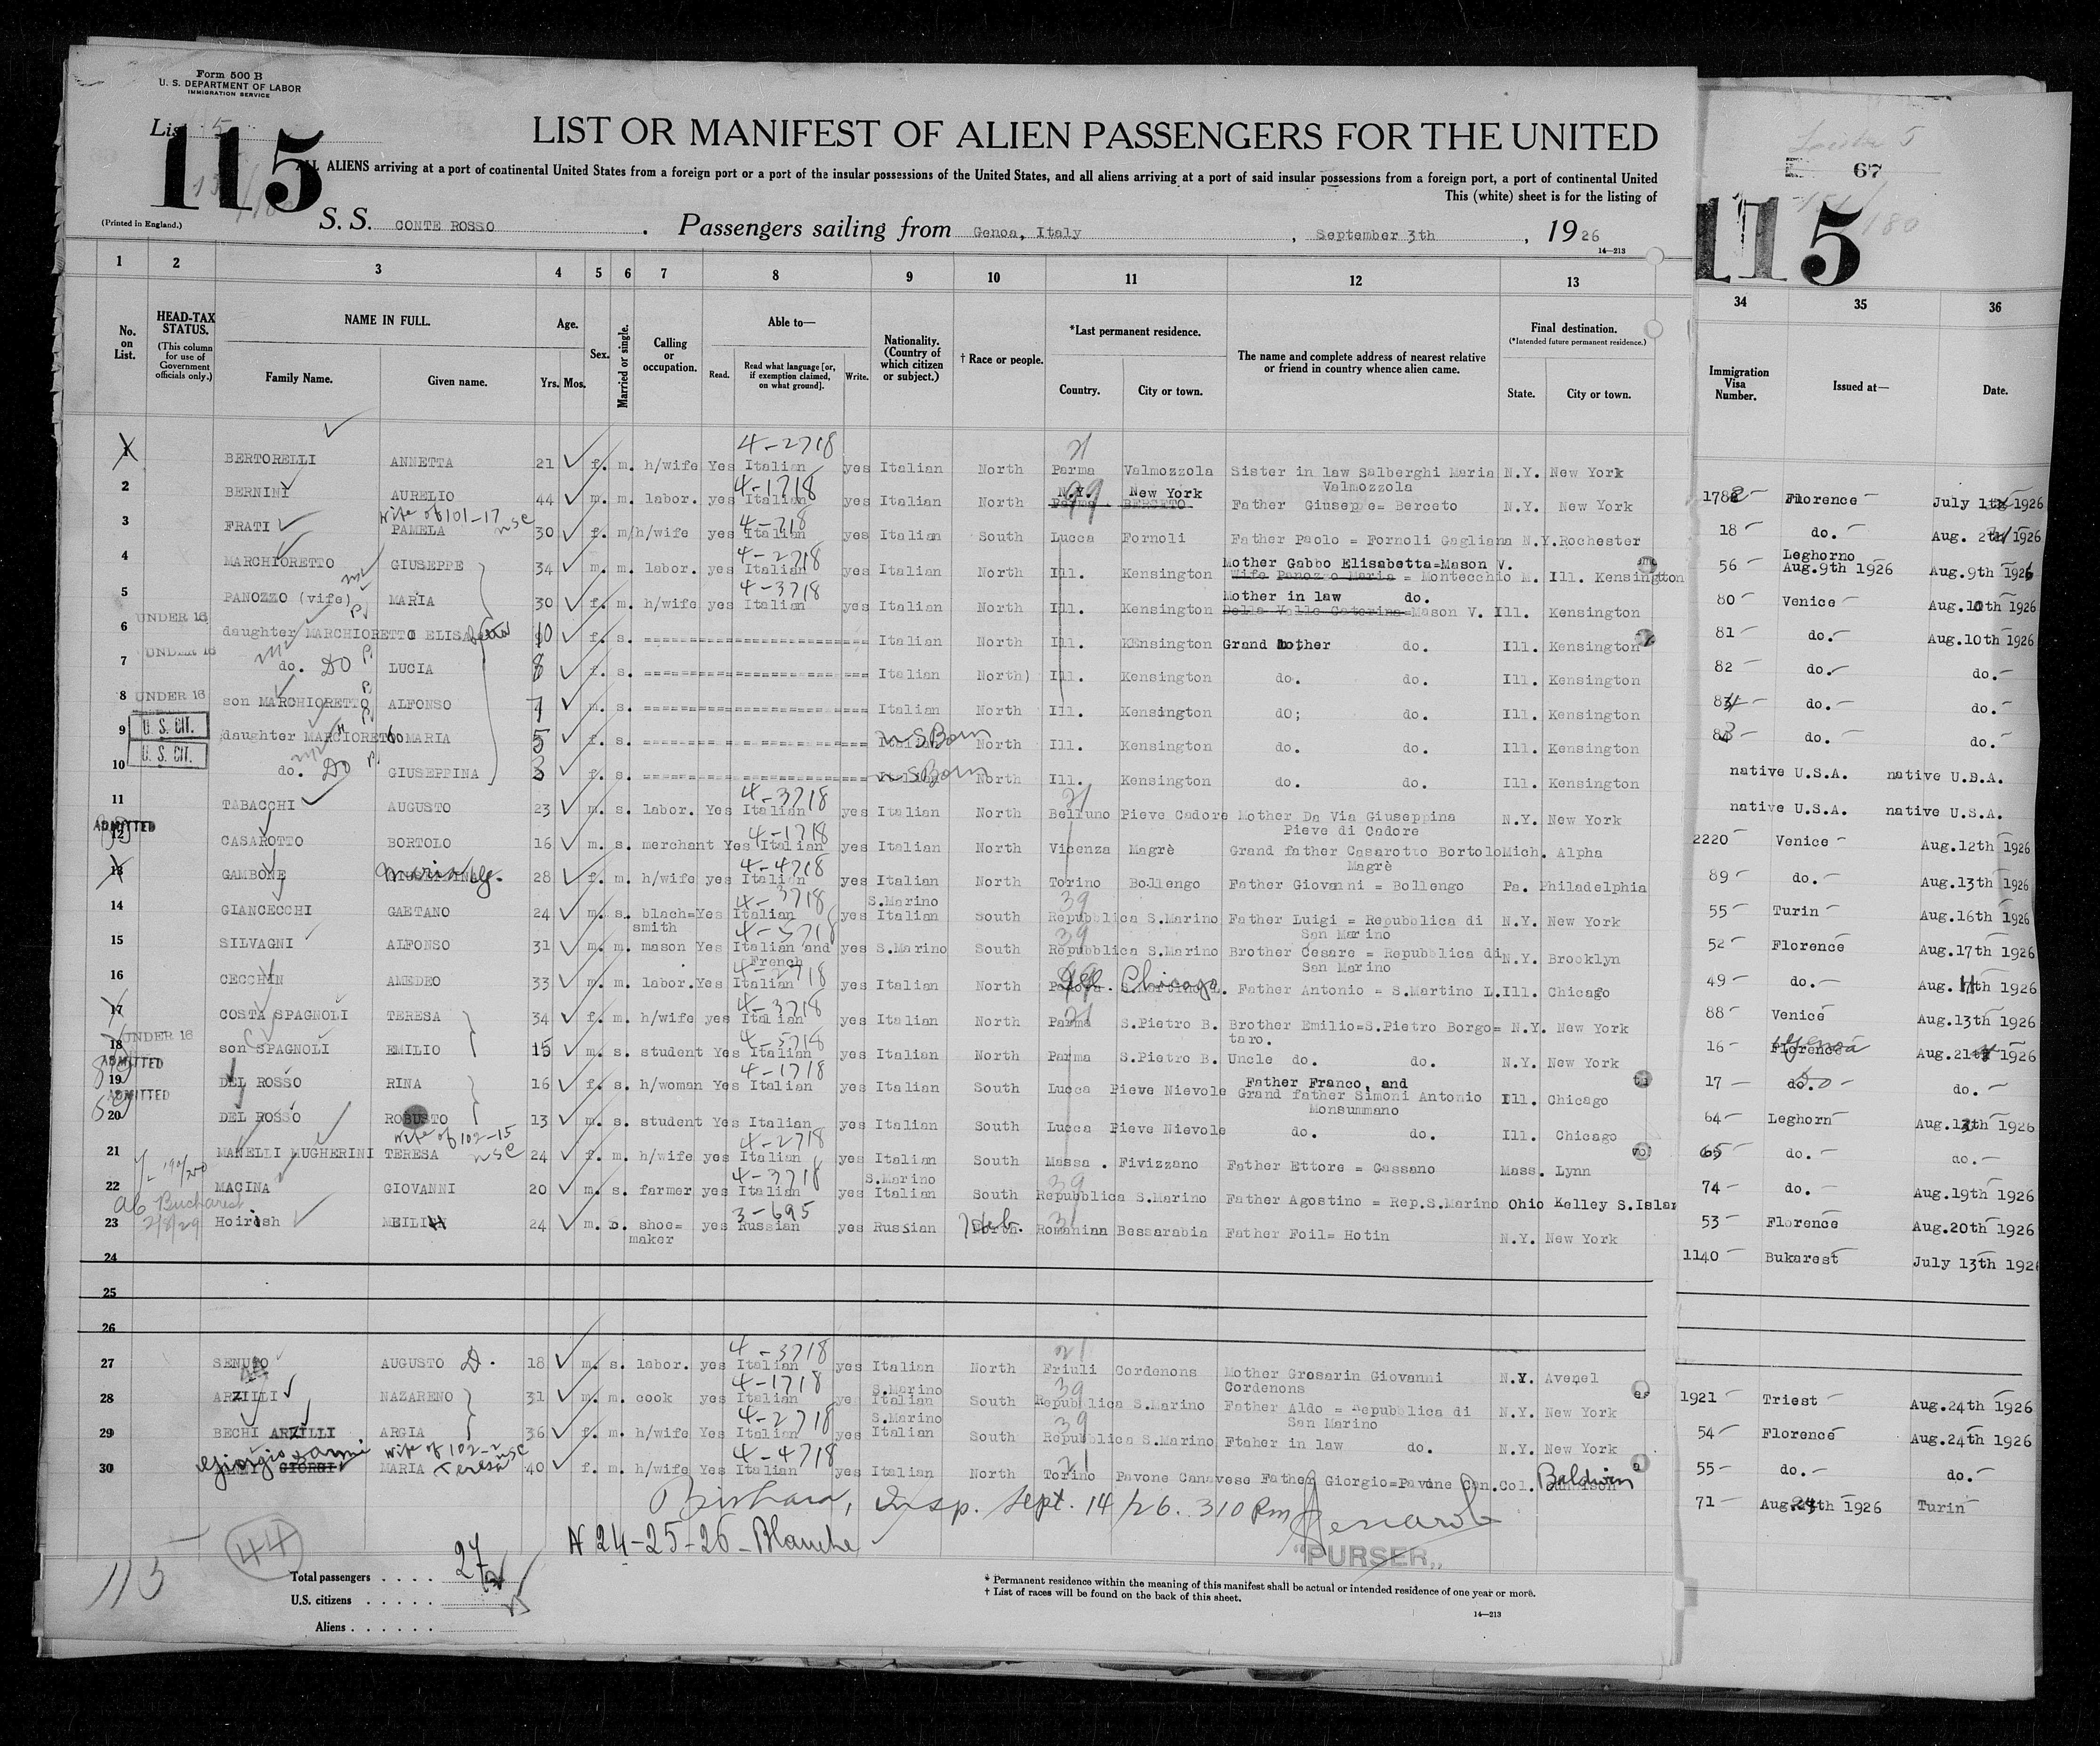 Form 500 B
U. S. DEPARTMENT OF LABOR
IMMIGRATION SERVICE
List 5
115
LIST OR MANIFEST OF ALIEN PASSENGERS FOR THE UNITED
ALL ALIENS arriving at a port of continental United States from a foreign port or a port of the insular possessions of the United States, and all aliens arriving at a port of said insular possessions from a foreign port, a port of continental United
This (white) sheet is for the listing of
(Printed in England.)
S. S. CONTE ROSSO . Passengers sailing from Genoa, Italy , September 3th , 1926
14—213
67
115
180
1 2 3 4 5 6 7 8 9 10 11 12 13 34 35 36
No. on List.
HEAD-TAX STATUS.
(This column for use of Government officials only.)
NAME IN FULL.
Family Name. Given name.
Age.
Yrs. Mos.
Sex.
Married or single.
Calling or occupation.
Able to—
Read. Read what language [or, if exemption claimed, on what ground]. Write.
Nationality. (Country of which citizen or subject.)
† Race or people.
*Last permanent residence.
Country. City or town.
The name and complete address of nearest relative or friend in country whence alien came.
Final destination.
(*Intended future permanent residence.)
State. City or town.
Immigration Visa Number.
Issued at—
Date.
4-2718 21
1 BERTORELLI ANNETTA 21 f. m. h/wife Yes Italian yes Italian North Parma Valmozzola Sister in law Salberghi Maria N.Y. New York
Valmozzola
4-1718 N.Y. New York 99
2 BERNINI AURELIO 44 m. m. labor. yes Italian yes Italian North Parma BERCETO Father Giuseppe= Berceto N.Y. New York
wife of 101-17 nsc 4-718
3 FRATI PAMELA 30 f. m/h/wife yes Italian yes Italian South Lucca Fornoli Father Paolo = Fornoli Gagliana N.Y. Rochester
4-2718 Mother Gabbo Elisabetta=Mason V.
4 MARCHIORETTO GIUSEPPE 34 m. m. labor. yes Italian yes Italian North Ill. Kensington Wife Panozzo Maria = Montecchio M. Ill. Kensington
4-3718 Mother in law do.
5 PANOZZO (vife) MARIA 30 f. m. h/wife yes Italian yes Italian North Ill. Kensington Della Valle Caterina=Mason V. Ill. Kensington
UNDER 16
6 daughter MARCHIORETTO ELISABetta 10 f. s. Italian North Ill. KEnsington Grand Mother do. Ill. Kensington
UNDER 16
7 do. DO LUCIA 8 f. s. Italian North) Ill. Kensington do. do. Ill. Kensington
8 UNDER 16 son MARCHIORETTO ALFONSO 7 m. s. Italian North Ill. Kensington dO; do. Ill. Kensington
9 U. S. CIT. daughter MARCIORETTO MARIA 5 f. s. U S Born North Ill. Kensington do. do. Ill. Kensington
10 U. S. CIT. do. DO GIUSEPPINA 3 f. s. U S Born North Ill. Kensington do. do. Ill. Kensington
4-3718 21
11 TABACCHI AUGUSTO 23 m. s. labor. Yes Italian yes Italian North Belluno Pieve Cadore Mother Da Via Giuseppina N.Y. New York
Pieve di Cadore
ADMITTED 4-1718
12 CASAROTTO BORTOLO 16 m. s. merchant Yes Italian yes Italian North Vicenza Magrè Grand father Casarotto Bortolo Mich. Alpha
Magrè
4-4718
13 GAMBONE Maria G. 28 f. m. h/wife yes Italian yes Italian North Torino Bollengo Father Giovanni = Bollengo Pa. Philadelphia
4-3718 S.Marino 39
14 GIANCECCHI GAETANO 24 m. s. blach=smith Yes Italian yes Italian South Repubblica S.Marino Father Luigi = Repubblica di San Marino N.Y. New York
4-3718 39
15 SILVAGNI ALFONSO 31 m. m. mason Yes Italian and French yes S.Marino South Repubblica S.Marino Brother Cesare = Repubblica di San Marino N.Y. Brooklyn
4-2718
16 CECCHIN AMEDEO 33 m. m. labor. Yes Italian yes Italian North Ill. Chicago Father Antonio = S.Martino L. Ill. Chicago
4-3718 21
17 COSTA SPAGNOLI TERESA 34 f. m. h/wife yes Italian yes Italian North Parma S.Pietro B. Brother Emilio=S.Pietro Borgo= taro. N.Y. New York
UNDER 16 4-3718
18 son SPAGNOLI EMILIO 15 m. s. student Yes Italian yes Italian North Parma S.Pietro B. Uncle do. do. N.Y. New York
ADMITTED 4-1718
19 DEL ROSSO RINA 16 f. s. h/woman Yes Italian yes Italian South Lucca Pieve Nievole Father Franco, and Grand father Simoni Antonio Monsummano Ill. Chicago
ADMITTED
20 DEL ROSSO ROBUSTO 13 m. s. student Yes Italian yes Italian South Lucca Pieve Nievole do. do. Ill. Chicago
wife of 102-15 nsc 4-2718
21 MANELLI MUGHERINI TERESA 24 f. m. h/wife yes Italian yes Italian South Massa . Fivizzano Father Ettore = Gassano Mass. Lynn
4-3718 S.Marino 39
22 MACINA GIOVANNI 20 m. s. farmer yes Italian yes Italian South Repubblica S.Marino Father Agostino = Rep.S.Marino Ohio Kelley S.Islan
Bucharest 2/8/29 3-695 31
23 Hoirish MEILIK 24 m. s. shoe=maker yes Russian yes Russian Heb. Romanina Bessarabia Father Foil= Hotin N.Y. New York
24
25
26
4-3718 21
27 SENUTO AUGUSTO D. 18 m. s. labor. yes Italian yes Italian North Friuli Cordenons Mother Grosarin Giovanni Cordenons N.Y. Avenel
4-1718 S.Marino 39
28 ARZILLI NAZARENO 31 m. m. cook yes Italian ye Italian South Repubblica S.Marino Father Aldo = Repubblica di San Marino N.Y. New York
4-2718 S.Marino 39
29 BECHI ARZILLI ARGIA 36 f. m. h/wife Yes Italian yes Italian South Repubblica S.Marino Ftaher in law do. N.Y. New York
wife of 102-2 nsc 4-4718 21
30 GIORGI MARIA Teresa 40 f. m. h/wife Yes Italian yes Italian North Torino Pavone Canavese Father Giorgio=Pavone Can. Col. Baldwin
178 Florence July 1926
18 do. Aug. 1926
Leghorno
56 Aug.9th 1926 Aug.9th 1926
80 Venice Aug.10th 1926
81 do. Aug.10th 1926
82 do. do.
8 do. do.
8 do. do.
native U.S.A. native U.S.A.
native U.S.A. native U.S.A.
2220 Venice Aug.12th 1926
89 do. Aug.13th 1926
55 Turin Aug.16th 1926
52 Florence Aug.17th 1926
49 do. Aug. 11th 1926
88 Venice Aug.13th 1926
16 Genoa Aug.21 1926
17 do. do.
64 Leghorn Aug.13th 1926
65 do. do.
74 do. Aug.19th 1926
53 Florence Aug.20th 1926
1140 Bukarest July 13th 1926
1921 Triest Aug.24th 1926
54 Florence Aug.24th 1926
55 do. do.
71 Aug.24th 1926 Turin
Insp. Sept. 14/26. 310 Pm
N 24-25-26-Blanche
"PURSER,,
115
44
Total passengers . . . . 27
U.S. citizens . . . . .
Aliens . . . . . .
* Permanent residence within the meaning of this manifest shall be actual or intended residence of one year or more.
† List of races will be found on the back of this sheet.
14—213